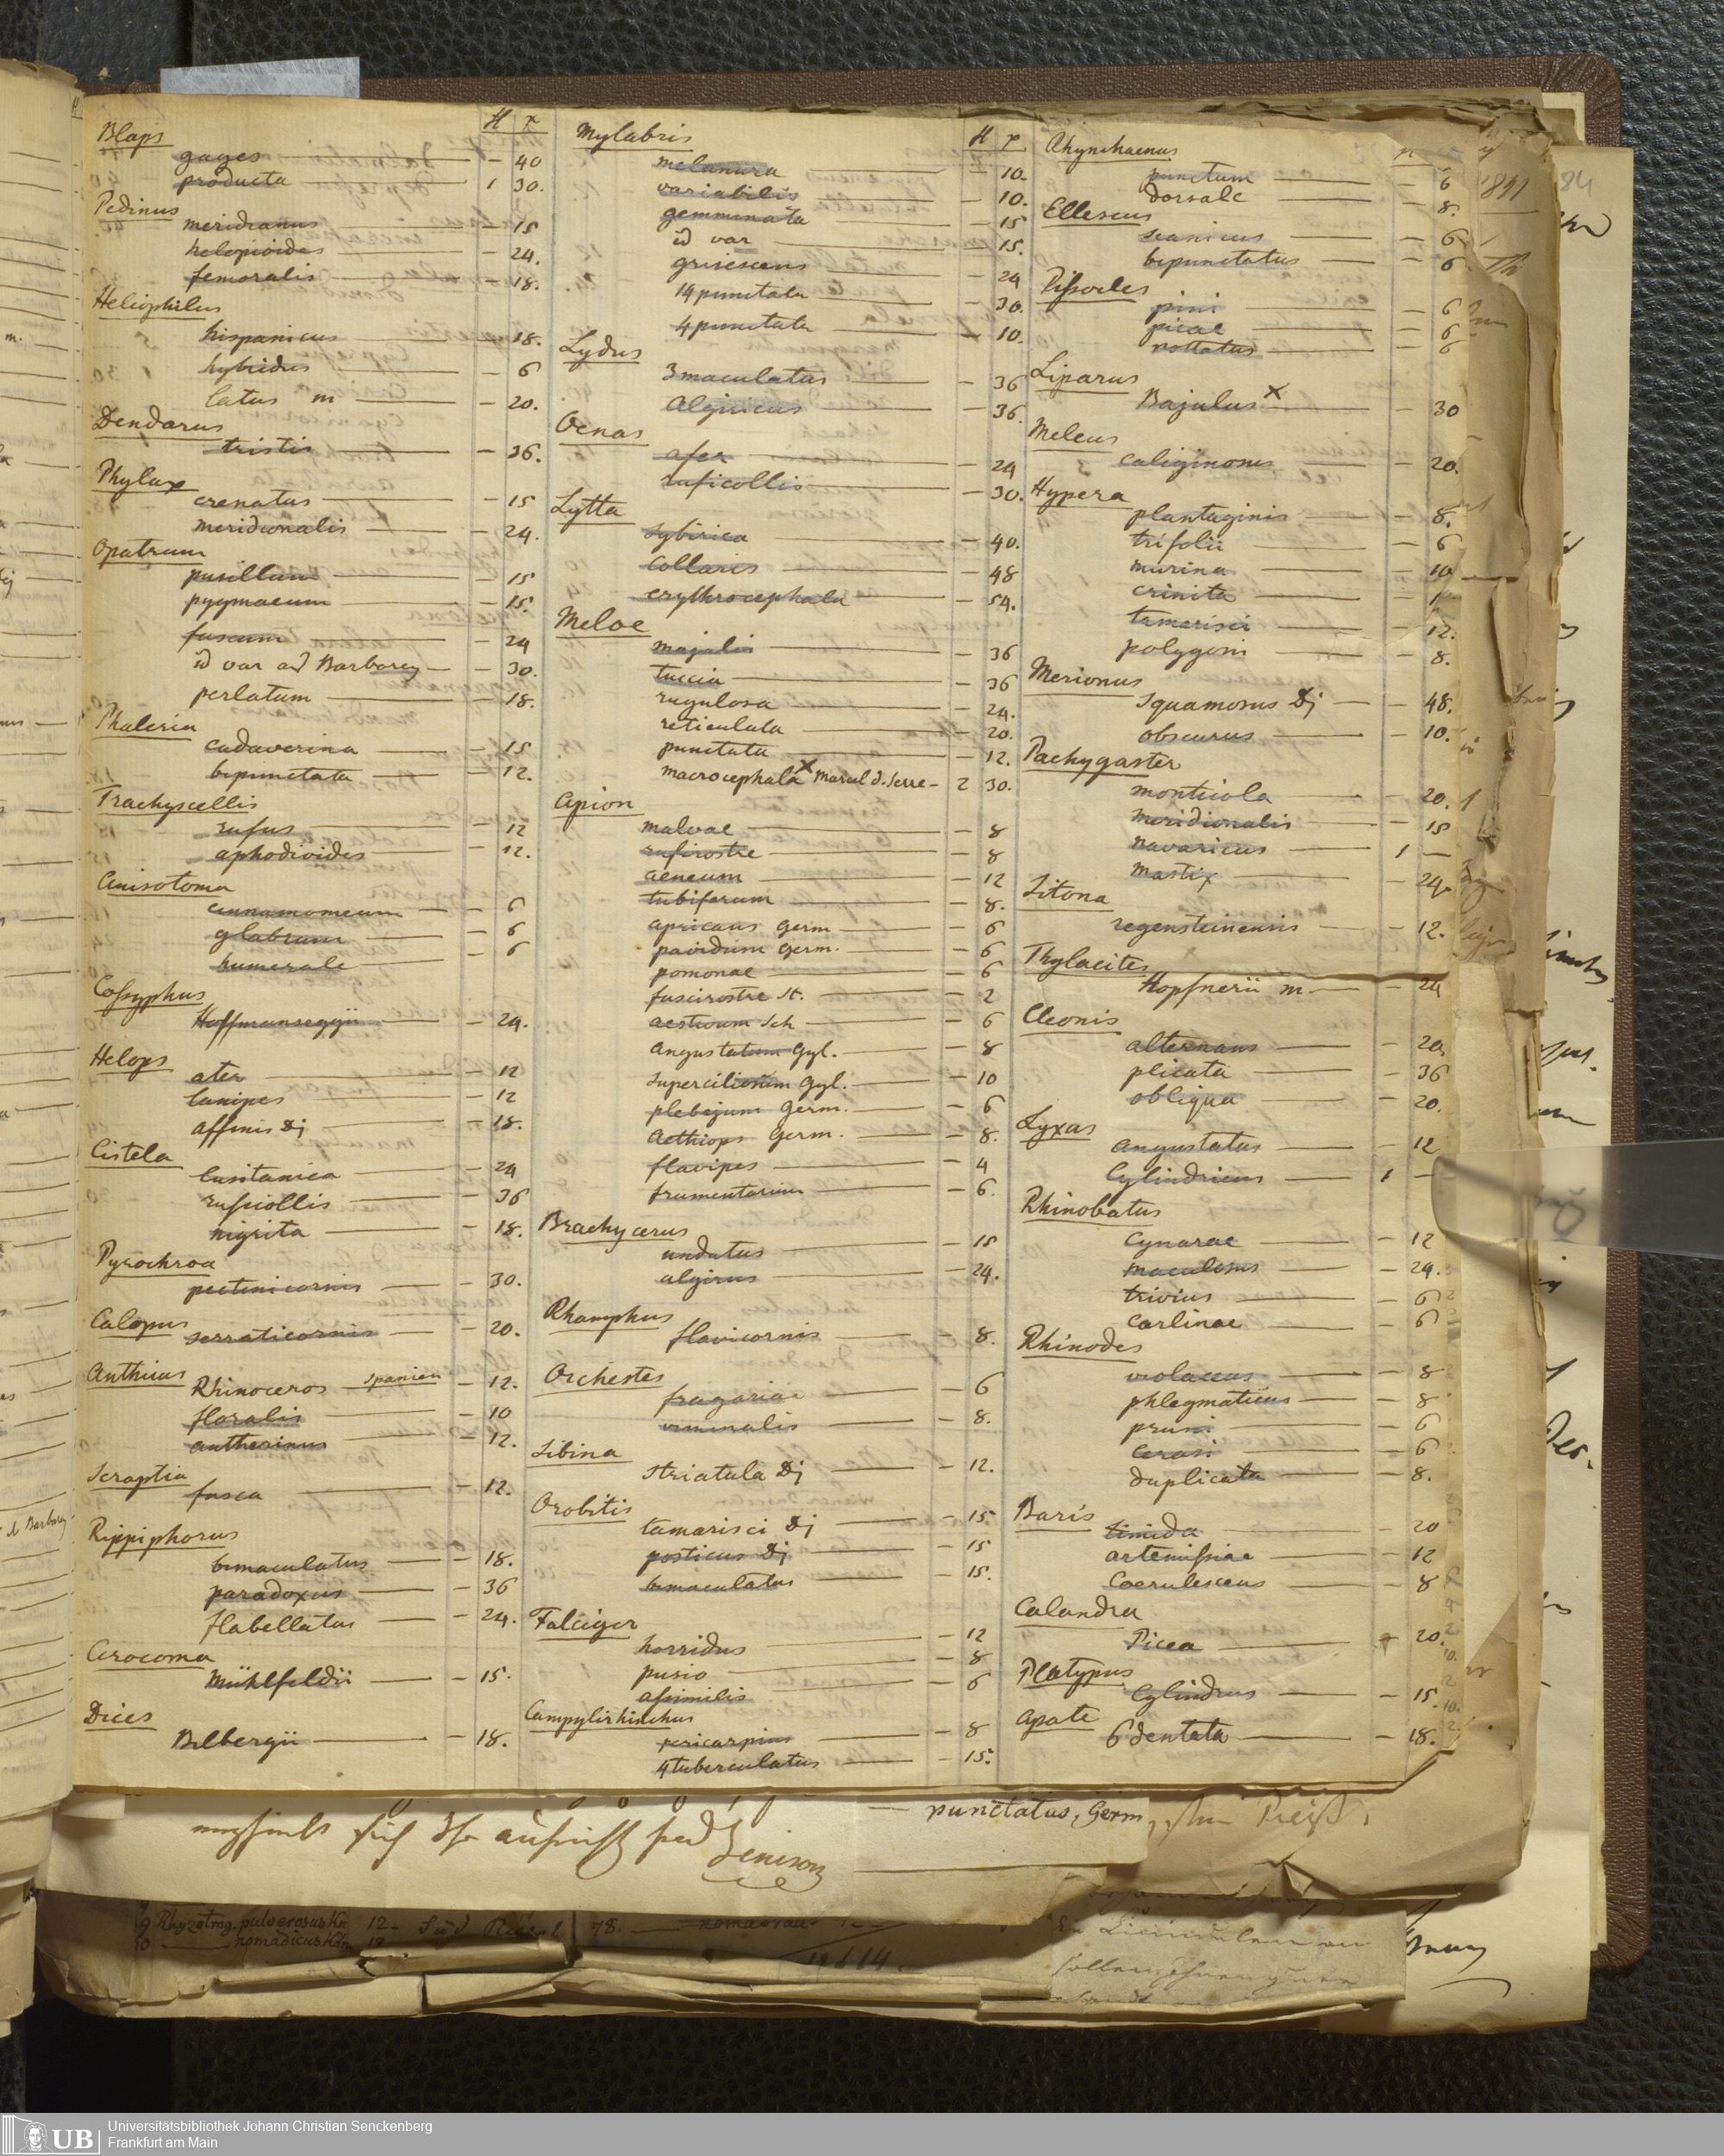 H x
Blaps
gages — — 40
producta — 1 30.
Pedinus
meridianus — — 15
helopioides — — 24.
femoralis — — 18.
Heliophilus
hispanicus — — 18.
hybridus — — 6
latus m — — 20.
Dendarus
tristis — — 36.
Phylax
crenatus — — 15
meridionalis — — 24.
Opatrum
pusillum — — 15
pygmaeum — — 15.
fuscum — — 24
id var ad Barbarey — — 30.
perlatum — — 18.
Phaleria
cadaverina — — 15
bipunctata — — 12.
Trachyscellis
rufus — — 12
aphodioides — — 12.
Anisotoma
cinnamomeum — — 6
glabrum — — 6
humerale — — 6
Cossyphus
Hoffmanseggii — — 24.
Helops
ater — — 12
lanipes — — 12
affinis Dj — — 18.
Cistela
lusitanica — — 24
ruficollis — — 36
nigrita — — 18.
Pyrochroa
pectinicornis — — 30.
Calopus
serraticornis — — 20.
Anthicus
Rhinoceros — Spanien — 12.
floralis — — 10
antherinus — — 12.
Scraptia
fusca — — 12.
Rippiphorus
bimaculatus — — 18.
paradoxus — — 36
flabellatus — — 24.
Cerocoma
Mühlfeldii — — 15.
Dices
Bilbergii — — 18.
H x
Mylabris
melanura — — 10.
variabilis — — 10.
gemminata — — 15
id var — — 15.
grisescens — — 24
14punctata — — 30.
4punctata — — 10.
Lydus
3maculatus — — 36
Algiricus — — 36.
Oenas
afer — — 24
ruficollis — — 30.
Lytta
sybirica — — 40.
Collaris — — 48
erythrocephala — — 54.
Meloe
majalis — — 36
tuccia — — 36
rugulosa — — 24.
reticulata — — 20.
punctata — — 12.
macrocephala x Marcel d. Serre — 2 30.
Apion
malvae — — 8
rufirostre — — 8
aeneum — — 12
tubiferum — — 8.
apricans Germ — — 6
pavidum Germ. — — 6
pomonae — — 6
fuscirostre St. — — 2
aestivum Sch — — 6
angustatum Gyl. — — 8
superciliosum Gyl. — — 10
plebejum Germ. — — 6
Aethiops Germ. — — 8.
flavipes — — 4
frumentarium — — 6.
Brachycerus
undatus — — 15
algirus — — 24.
Rhamphus
flavicornis — — 8.
Orchestes
fragariae — — 6
viminalis — — 8.
Sibina
striatula Dj — — 12.
Orobitis
tamarisci Dj — — 15
posticus Dj — — 15
bimaculatus — — 15.
Falciger
horridus — — 12
pusio — — 8
assimilis — — 6
Campylirhinchus
pericarpius — — 8
4tuberculatus — — 15.
Rhynchaenus
punctum — — 6
dorsale — — 8.
Ellescus
scanicus — — 6
bipunctatus — — 6
Pissodes
pini — — 6
piceae — — 6
nottatus — — 6
Liparus
Bajulus x — — 30
Meleus
caliginosus — — 20.
Hypera
plantaginis — — 8.
trifolii — — 6
murina — — 10
crinita —
tamarisci — — 12.
polygoni — — 8.
Merionus
squamosus Dj — — 48.
obscurus — — 10.
Pachygaster
monticola — — 20.
meridionalis — — 15
navaricus — 1 —
mastix — — 24.
Sitona
regensteinensis — — 12.
Thylacites
Hopfnerii m — — 24
Cleonis
alternans — — 20.
plicata — — 36
obliqua — — 20.
Lyxus
angustatus — — 12
Cylindricus — 1 —
Rhinobatus
Cynarae — — 12
maculosus — — 24.
trivius — — 6
Carlinae — — 6
Rhinodes
violaceus — — 8
phlegmaticus — — 8
pruni — — 6
Cerasi — — 6
duplicata — — 8.
Baris
timida — — 20
artemissiae — — 12
Coerulescens — — 8
Calandra
Picea — — 20.
Platypus
Cylindrus — — 15.
Apate
6dentata — — 18.
— punctatus, Germ
Jenison
Rhyzotrog. pulverosus Kn 12 -
nomadicus Kdn 12
78.
Universitätsbibliothek Johann Christian Senckenberg
Frankfurt am Main
UB